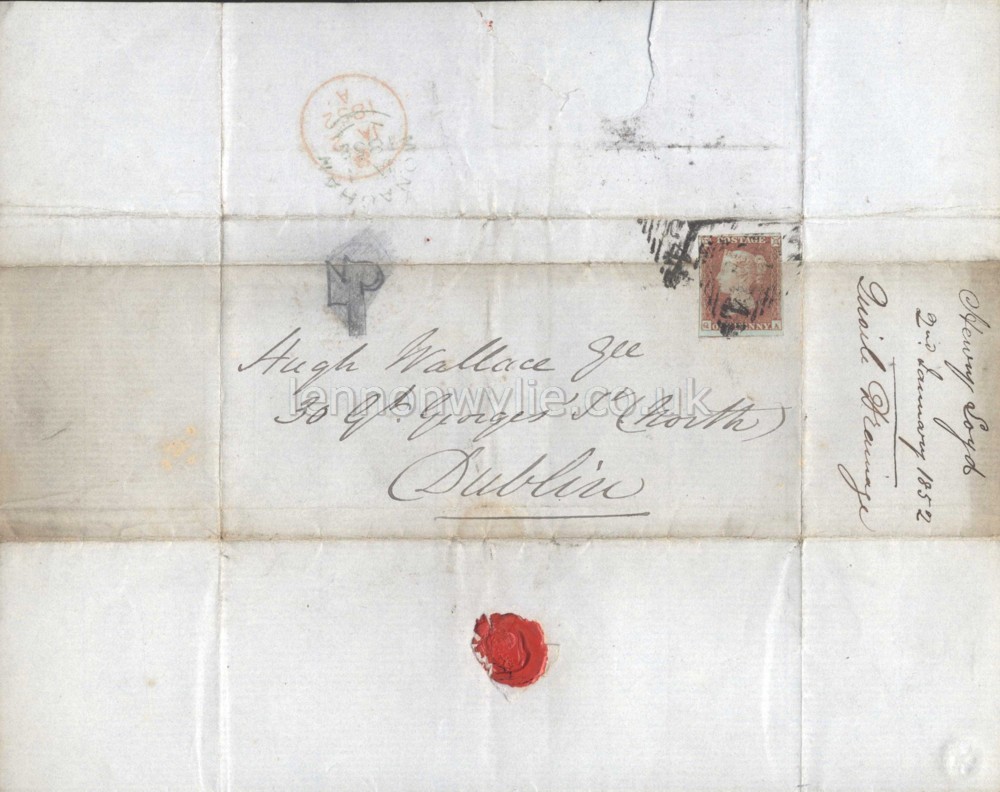 MONAGHAN
JA
1852
A
POSTAGE
S A
Hugh Wallace Esqe
30 Gt. Georges St. (North)
Dublin
lennonwylie.co.uk
Henry Loyd
2nd January 1852
Quoile Drainage